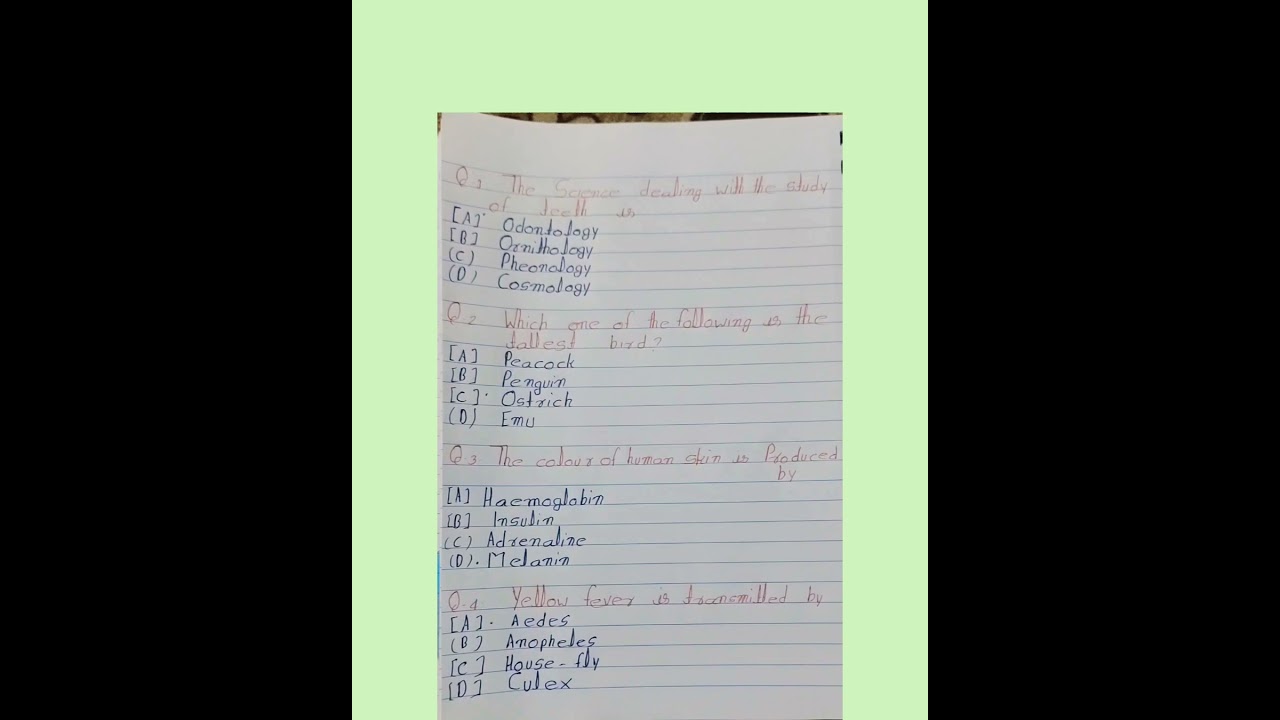 Q1 The Science dealing with the study
of teeth is
[A]. Odontology
[B] Ornithology
(C) Pheonology
(D) Cosmology
Q.2 Which one of the following is the
tallest bird?
[A] Peacock
[B] Penguin
[C]. Ostrich
(D) Emu
Q3. The colour of human skin is Produced
by
[A] Haemoglobin
[B] Insulin
(C) Adrenaline
(D). Melanin
Q.4 Yellow fever is transmitted by
[A]. Aedes
(B] Anopheles
[C] House-fly
[D] Culex